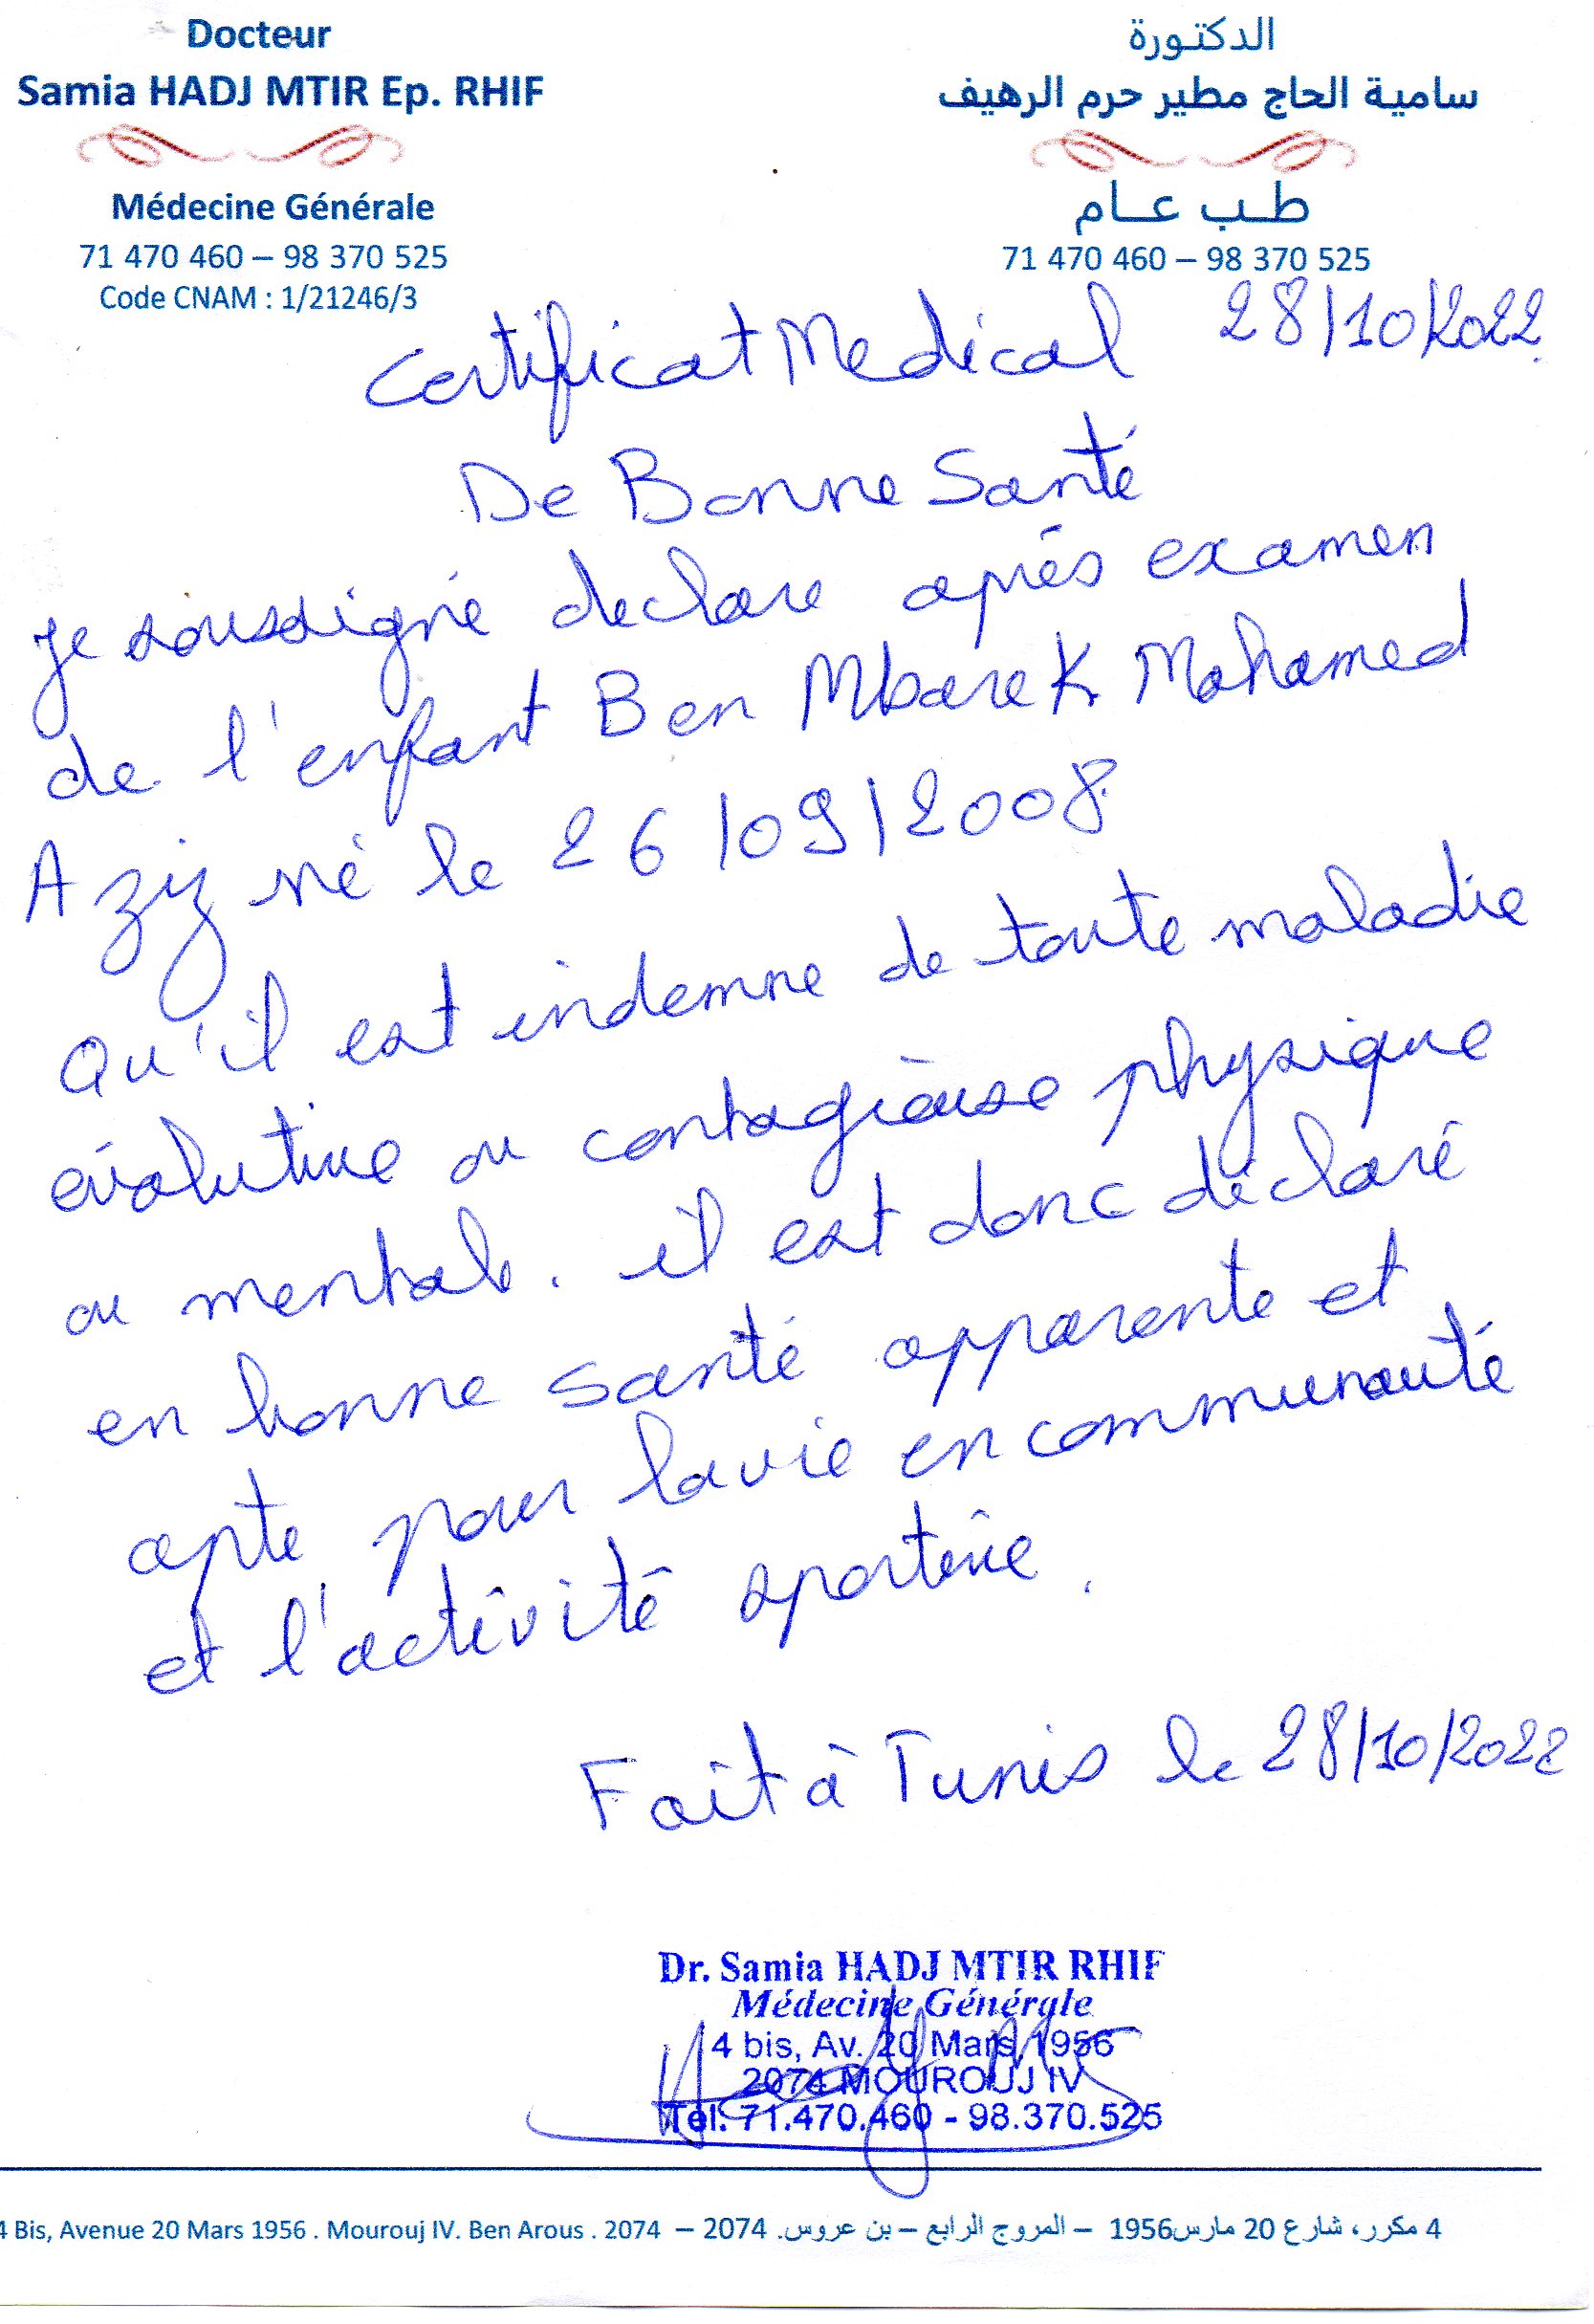 Docteur
Samia HADJ MTIR Ep. RHIF
Médecine Générale
71 470 460 – 98 370 525
Code CNAM : 1/21246/3
الدكتورة
سامية الحاج مطير حرم الرهيف
طب عام
71 470 460 – 98 370 525
28/10/2022
Certificat Medical
De Bonne Santé
Je soussigné declare aprés examen
de l'enfant Ben Mbarek Mohamed
Aziz né le 26/09/2008
Qu'il est indemne de toute maladie
évolutive ou contagieuse physique
ou mentale. il est donc déclaré
en bonne santé apparente et
apte pour la vie en communauté
et l'activité sportive.
Fait à Tunis le 28/10/2022
Dr. Samia HADJ MTIR RHIF
Médecine Générale
4 bis, Av. 20 Mars, 1956
2074 MOUROUJ IV
Tél. 71.470.460 - 98.370.525
4 Bis, Avenue 20 Mars 1956 . Mourouj IV. Ben Arous . 2074 – 4 مكرر، شارع 20 مارس1956 – المروج الرابع – بن عروس. 2074